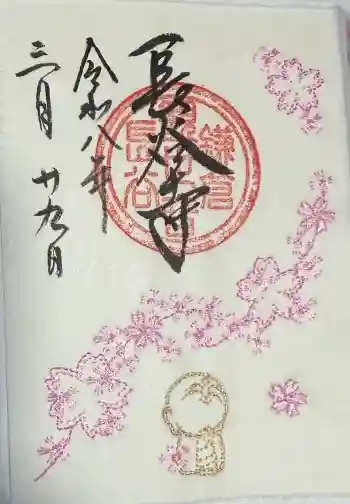 長谷寺
鎌倉
長谷
令和八年
三月廿九日